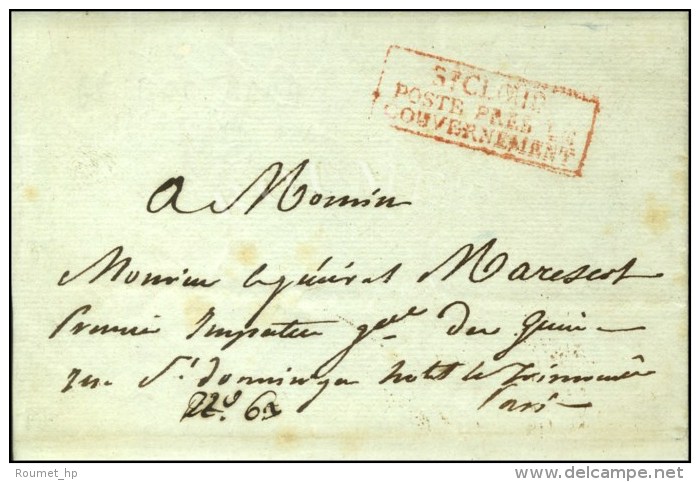 St CLOUD
POSTE PRES LE
GOUVERNEMENT
a Monsieur
Monsieur le général Marescot
Premier Inspecteur gal du Génie
rue St dominique hotel
No. 63
Paris
Roumet_hp
©delcampe.net